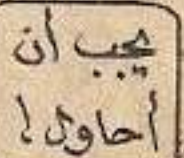 يجب أن
أحاول !